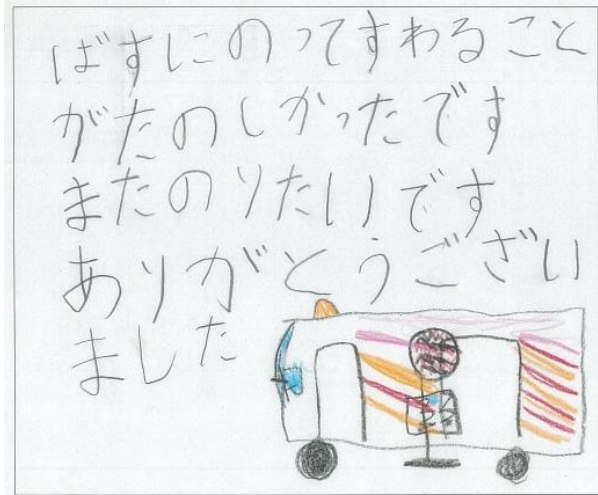 ばすにのってすわること
がたのしかったです
またのりたいです
ありがとうござい
ました